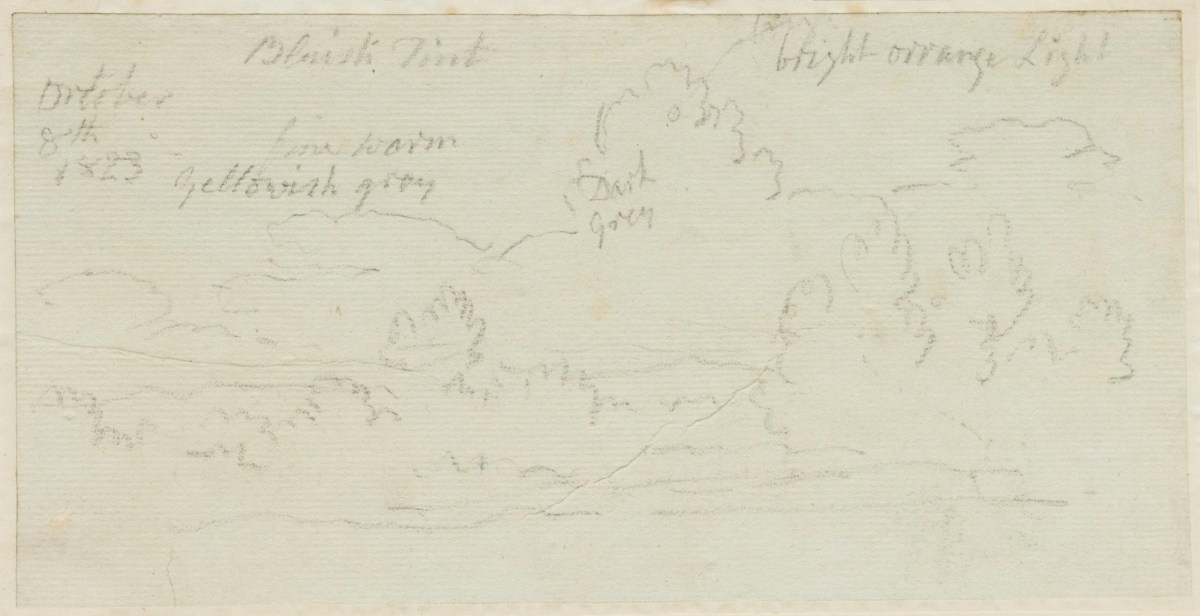 Bluish Tint
bright orrange Light
October
8th
1823
fine warm
yellowish grey
Dark
Grey